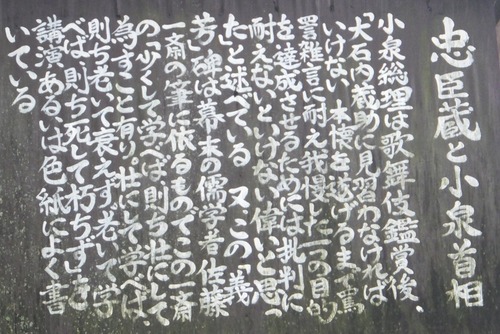 忠臣蔵と小泉首相
小泉総理は歌舞伎鑑賞後、
「大石内蔵助に見習わなければ
いけない、本懐を遂げるまで罵
詈雑言に耐え我慢した一つの目的
を達成させるためには批判に
耐えないといけない偉いと思っ
た」と述べている 又、この「義
芳」碑は幕末の儒学者佐藤
一斎の筆に依るものでこの一斎
の「少くして学べば則ち壮にして
為すこと有り。壮にして学べば、
則ち老いて衰えず老いて学
べば、則ち死して朽ちず」を
講演あるいは色紙によく書
いている